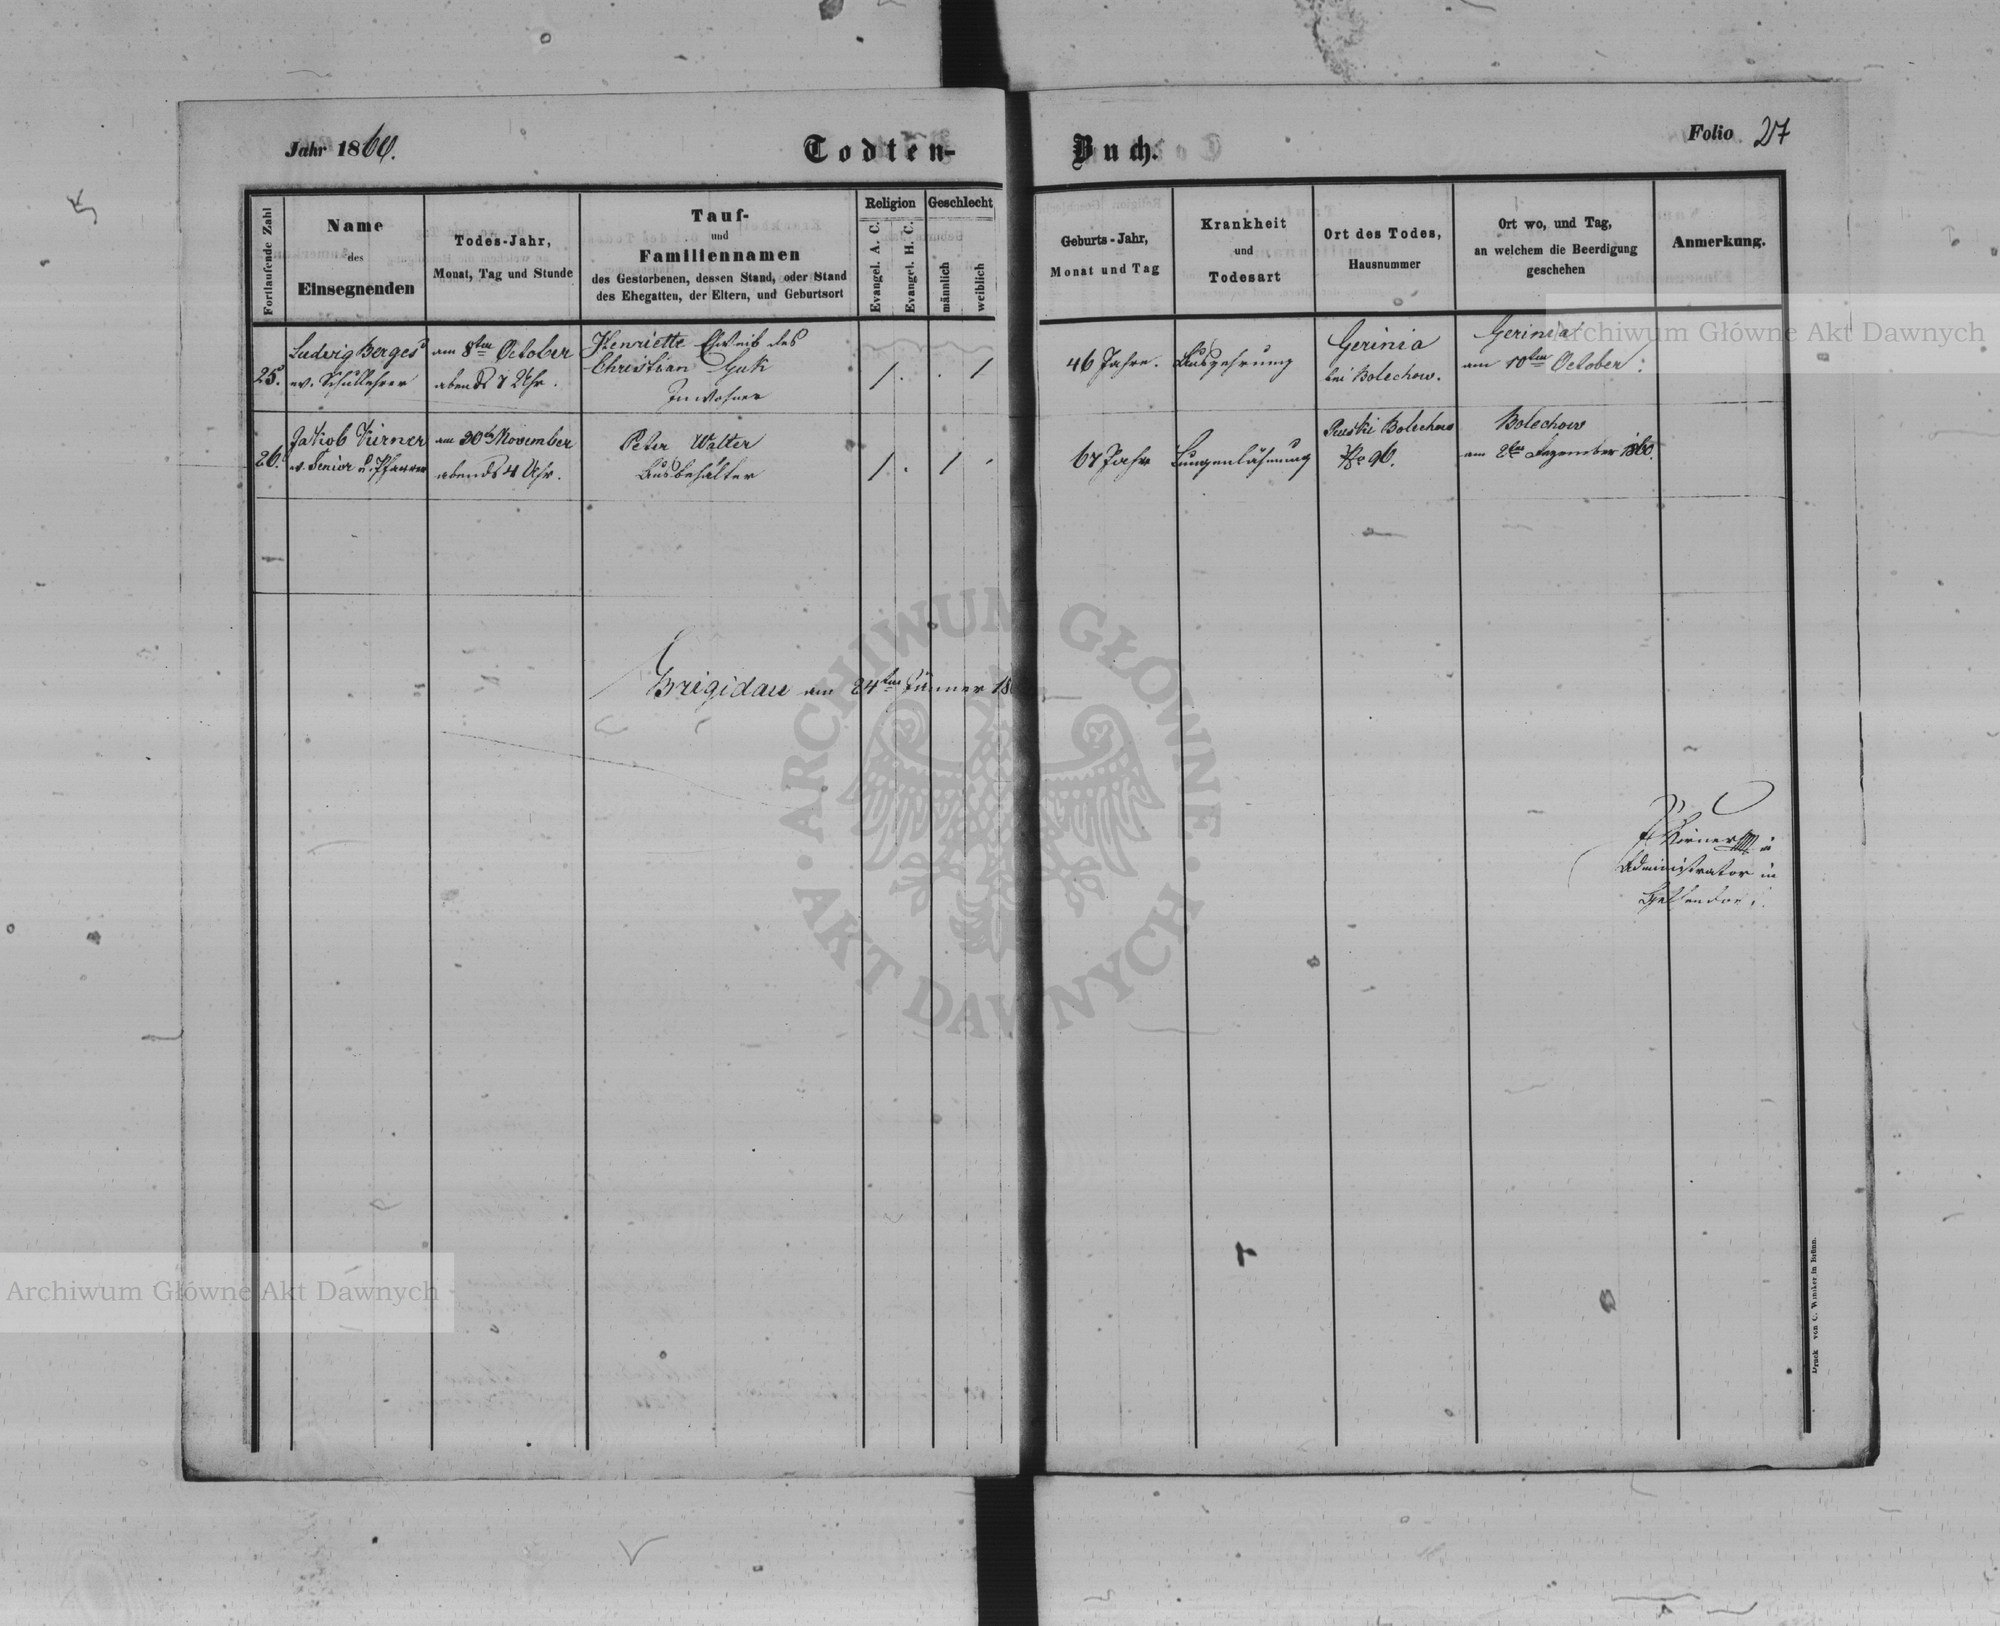 Jahr 1860.
Todten-
Buch.
Folio 27
Fortlaufende Zahl
Name
des
Einsegnenden
Todes-Jahr,
Monat, Tag und Stunde
Tauf-
und
Familiennamen
des Gestorbenen, dessen Stand, oder Stand
des Ehegatten, der Eltern, und Geburtsort
Religion
Evangel. A. C.
Evangel. H. C.
Geschlecht
männlich
weiblich
Geburts-Jahr,
Monat und Tag
Krankheit
und
Todesart
Ort des Todes,
Hausnummer
Ort wo, und Tag,
an welchem die Beerdigung
geschehen
Anmerkung.
25.
Ludwig Berges
ev. Schullehrer
am 8ten October
abends 7 Uhr.
Henriette Eheweib des
Christian
Inwohner
1
1
46 Jahre.
Auszehrung
Gerinia
bei Bolechow.
Gerinia
am 10ten October.
26.
Jakob Kirner
ev. Senior u. Pfarrer
am 30ten November
abends 4 Uhr.
Peter Walter
Ausbehälter
1
1
67 Jahr
Lungenlähmung
Ruski Bolechow
No 96.
Bolechow
am 2ten Dezember 1860.
Brigidau am 24ten Jänner 18
Kirner
Administrator in
Druck von C. Winiker in Brünn.
ARCHIWUM GŁÓWNE AKT DAWNYCH
Archiwum Główne Akt Dawnych
Archiwum Główne Akt Dawnych